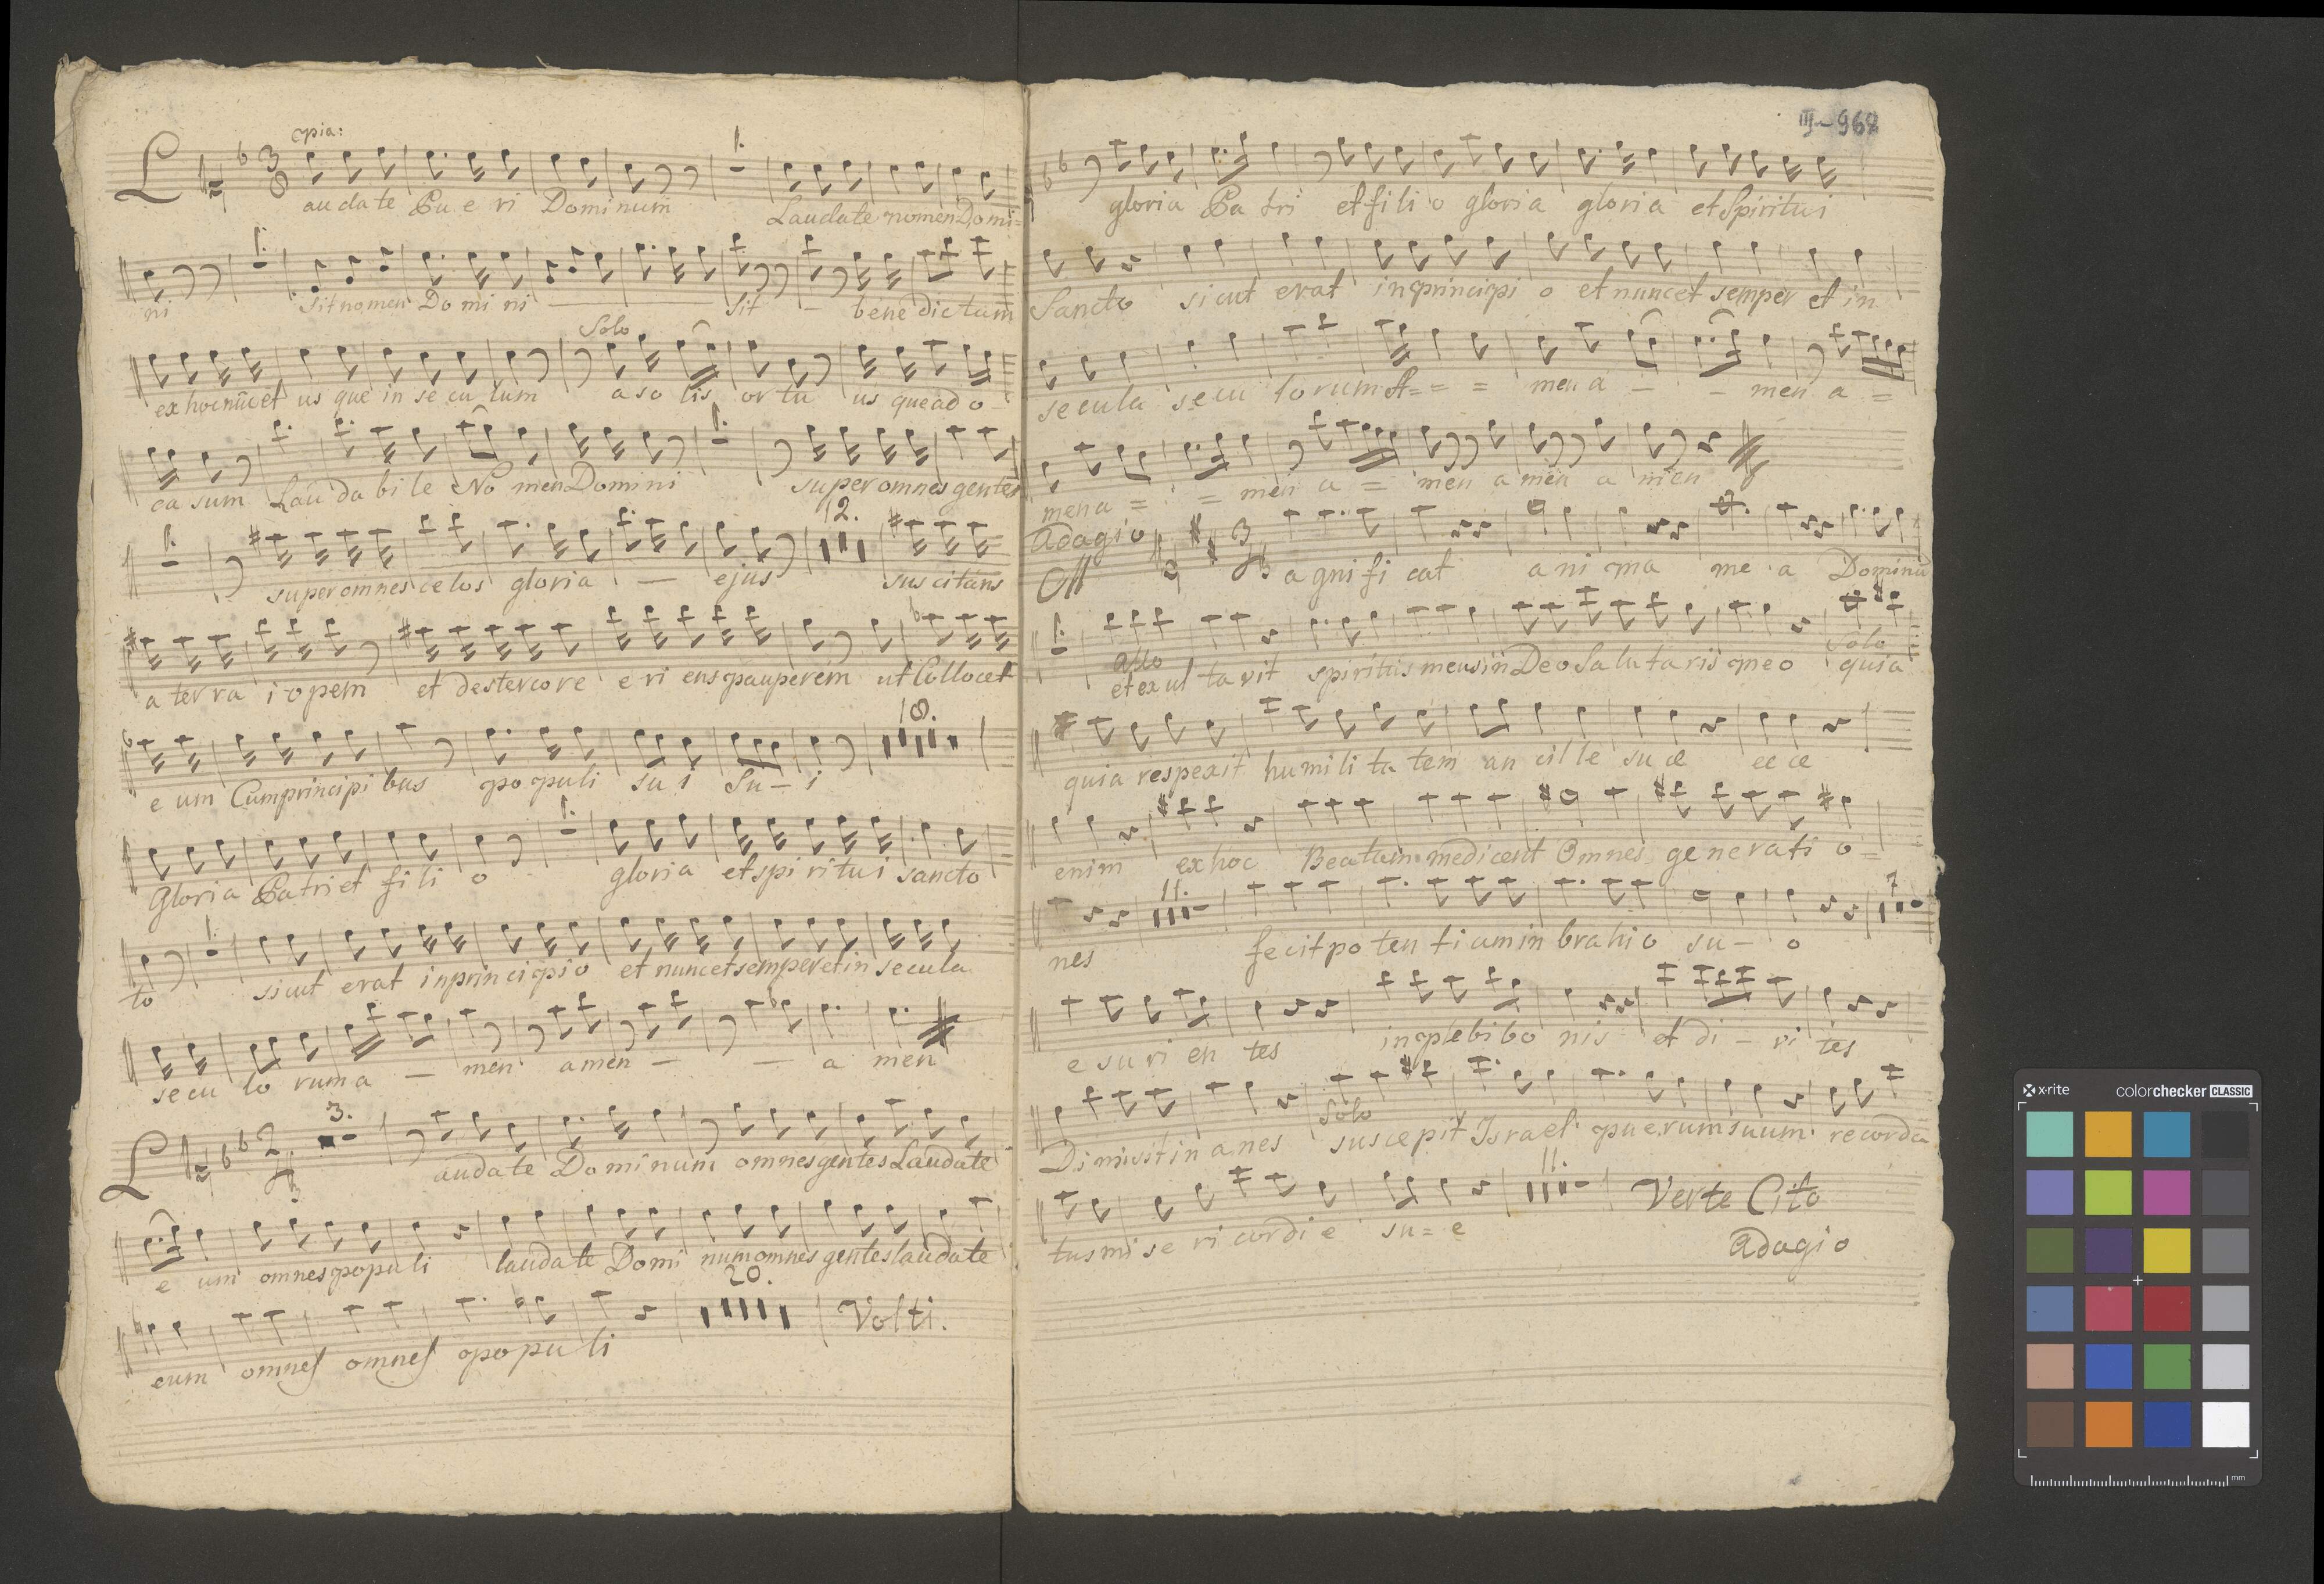 pia:
Laudate Pu e ri Dominum Laudate nomen Domi=
ni Sit nomen Do mi ni Sit - bene dictum
Solo
ex hoc nūc et us que in se cu lum a so lis or tu us que ad o-
ca sum Lau da bi le No men Domini super omnes gentes
12.
super omnes celos gloria — ejus sus citans
a ter ra i o pem et de stercore e ri ens pauperem ut Collocet
18.
e um Cum principi bus po puli su i Su - i
Gloria Patri et fi li o gloria et spi ritu i sancto
to sicut erat in principio et nunc et semper et in secula
se cu lo rum a — men amen — — a men
3.
Laudate Dominum omnes gentes Laudate
e um omnes populi laudate Domi num omnes gentes laudate
20.
eum omnes omnes populi Volti.
III-968
gloria Pa tri et fi li o gloria gloria et Spiritui
Sancto sicut erat in principi o et nunc et semper et in
se cula se cu lo rum A= = = men a - - men a =
men a = = men a = men a men a men
Adagio
Magni fi cat a ni ma me a Dominū
allo Solo
et ex ul ta vit spiritus meus in Deo Sa lu ta ris meo quia
quia respexit humi li ta tem an cil le su æ ec ce
enim ex hoc Beatam me dicent Omnes ge ne ra ti o=
11. 7
nes fecit po ten ti am in brahio su - o
e su ri en tes in plebi bo nis et di - vi tes
Solo
Dimisit in a nes suscepit Israel pu e rum suum recorda
11.
tus mi se ri cordi e su = e Verte Cito
Adagio
x-rite colorchecker CLASSIC
mm